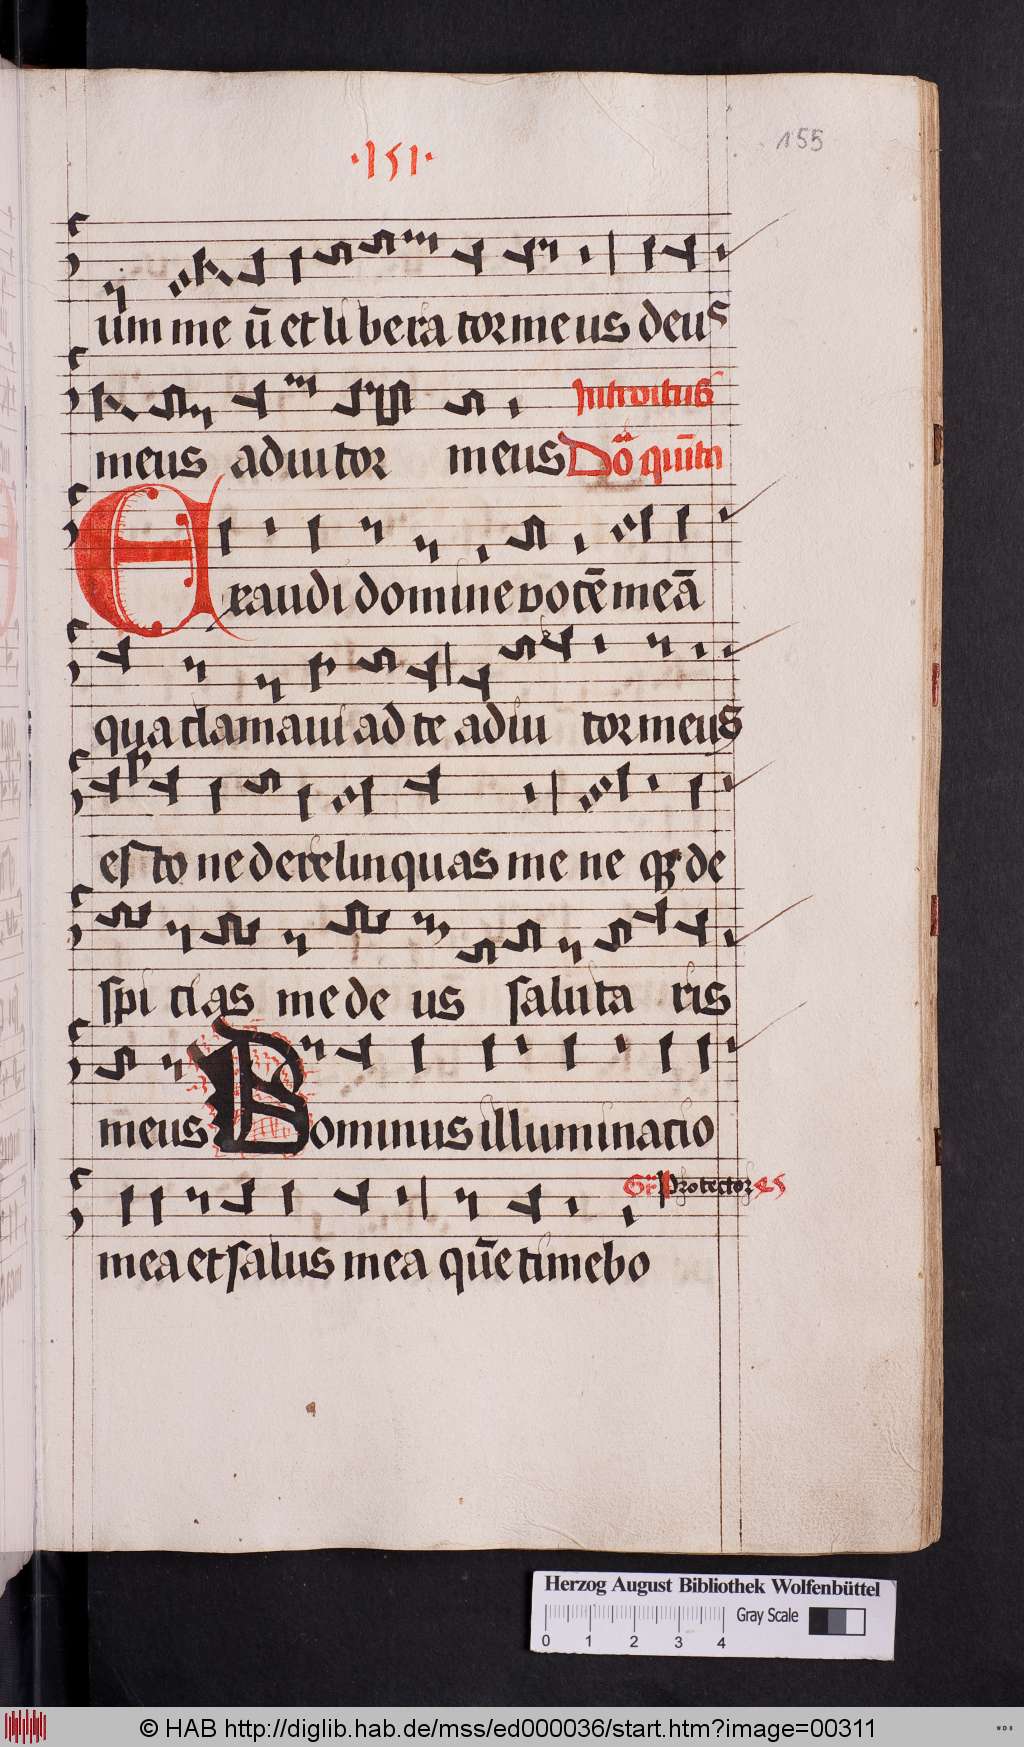 ·151·
155
um me ū et li bera tor me us deus
Introitus
meus adiutor meus Dō quīta
Exaudi domine vocē meā
qua clamaui ad te adiu tor meus
esto ne derelinquas me ne qz de
spi cias me de us saluta ris
meus Dominus illuminatio
Gr Protector 45
mea et salus mea quē timebo
Herzog August Bibliothek Wolfenbüttel
Gray Scale
0 1 2 3 4
© HAB http://diglib.hab.de/mss/ed000036/start.htm?image=00311